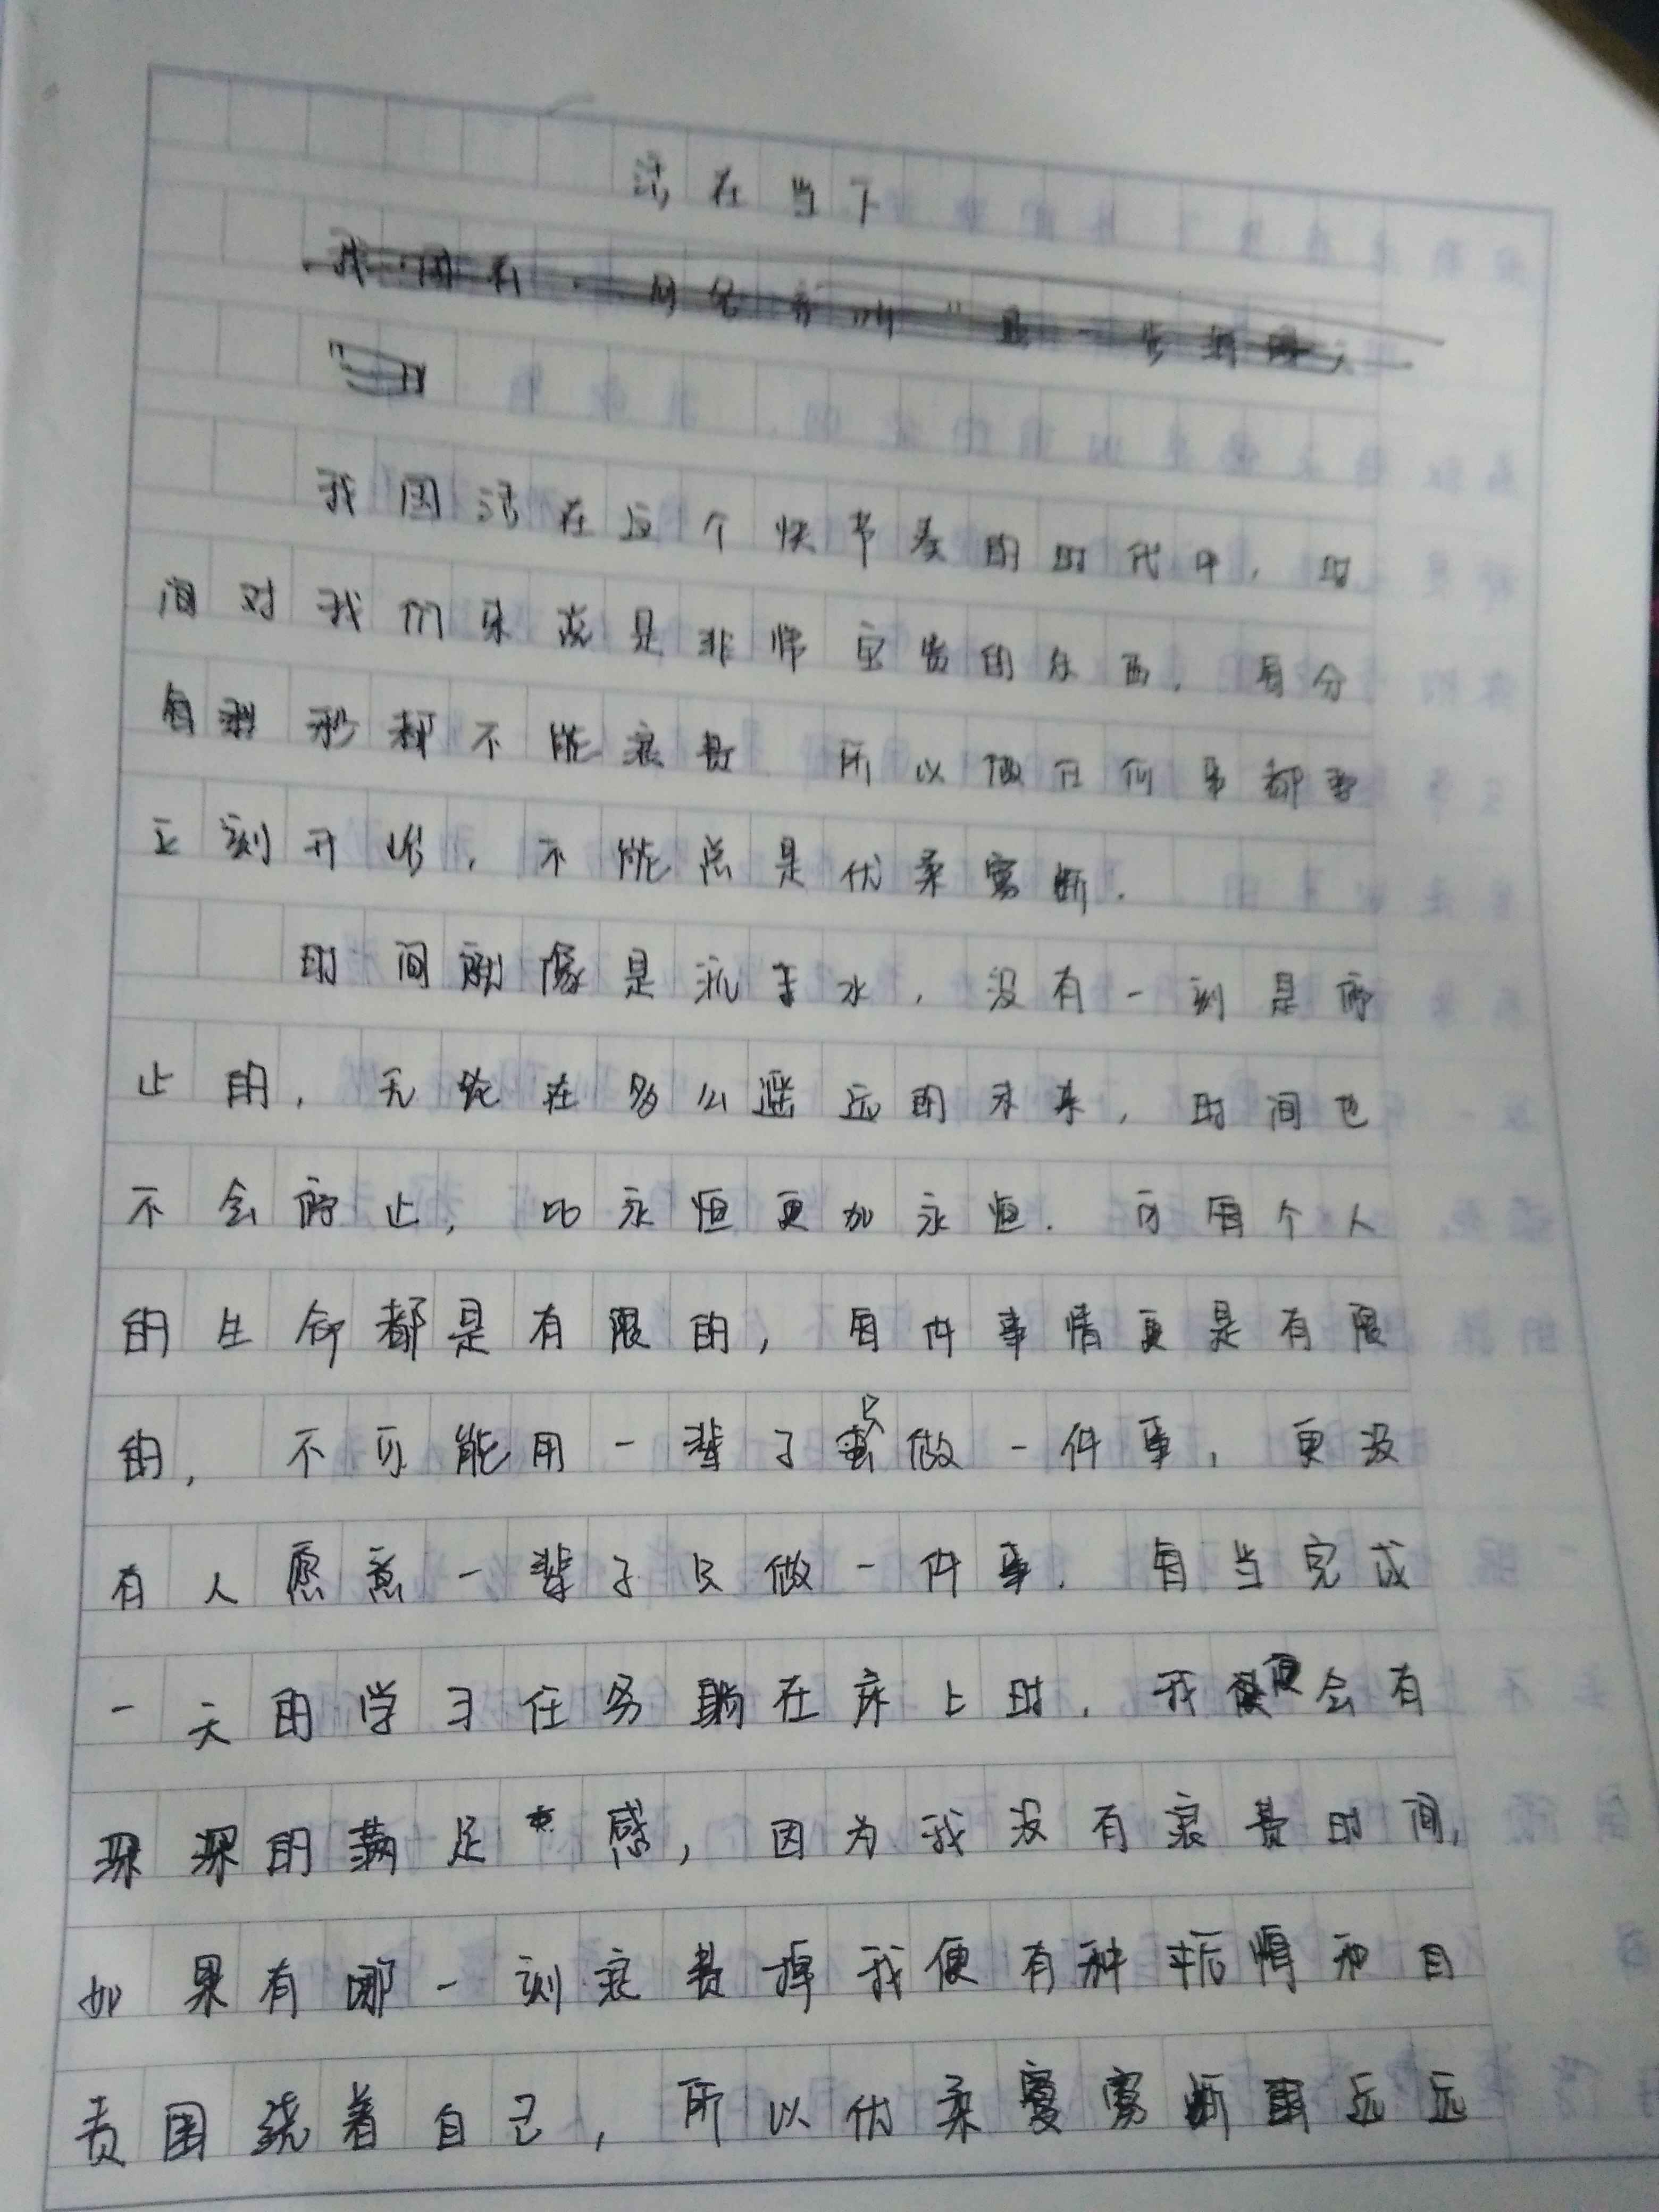 活在当下
我因活在这个快节奏的时代中，时
间对我们来说是非常宝贵的东西，每分
每秒都不能浪费，所以做任何事都要
立刻开始，不能总是优柔寡断．
时间就像是流水，没有一刻是停
止的，无论在多么遥远的未来，时间也
不会停止，比永恒更加永恒．可每个人
的生命都是有限的，每件事情更是有限
的，不可能用一辈子只做一件事，更没
有人愿意一辈子只做一件事．每当完成
一天的学习任务躺在床上时，我便会有
深深的满足感，因为我没有浪费时间，
如果有哪一刻浪费掉我便有种后悔和自
责围绕着自己，所以优柔寡断远远